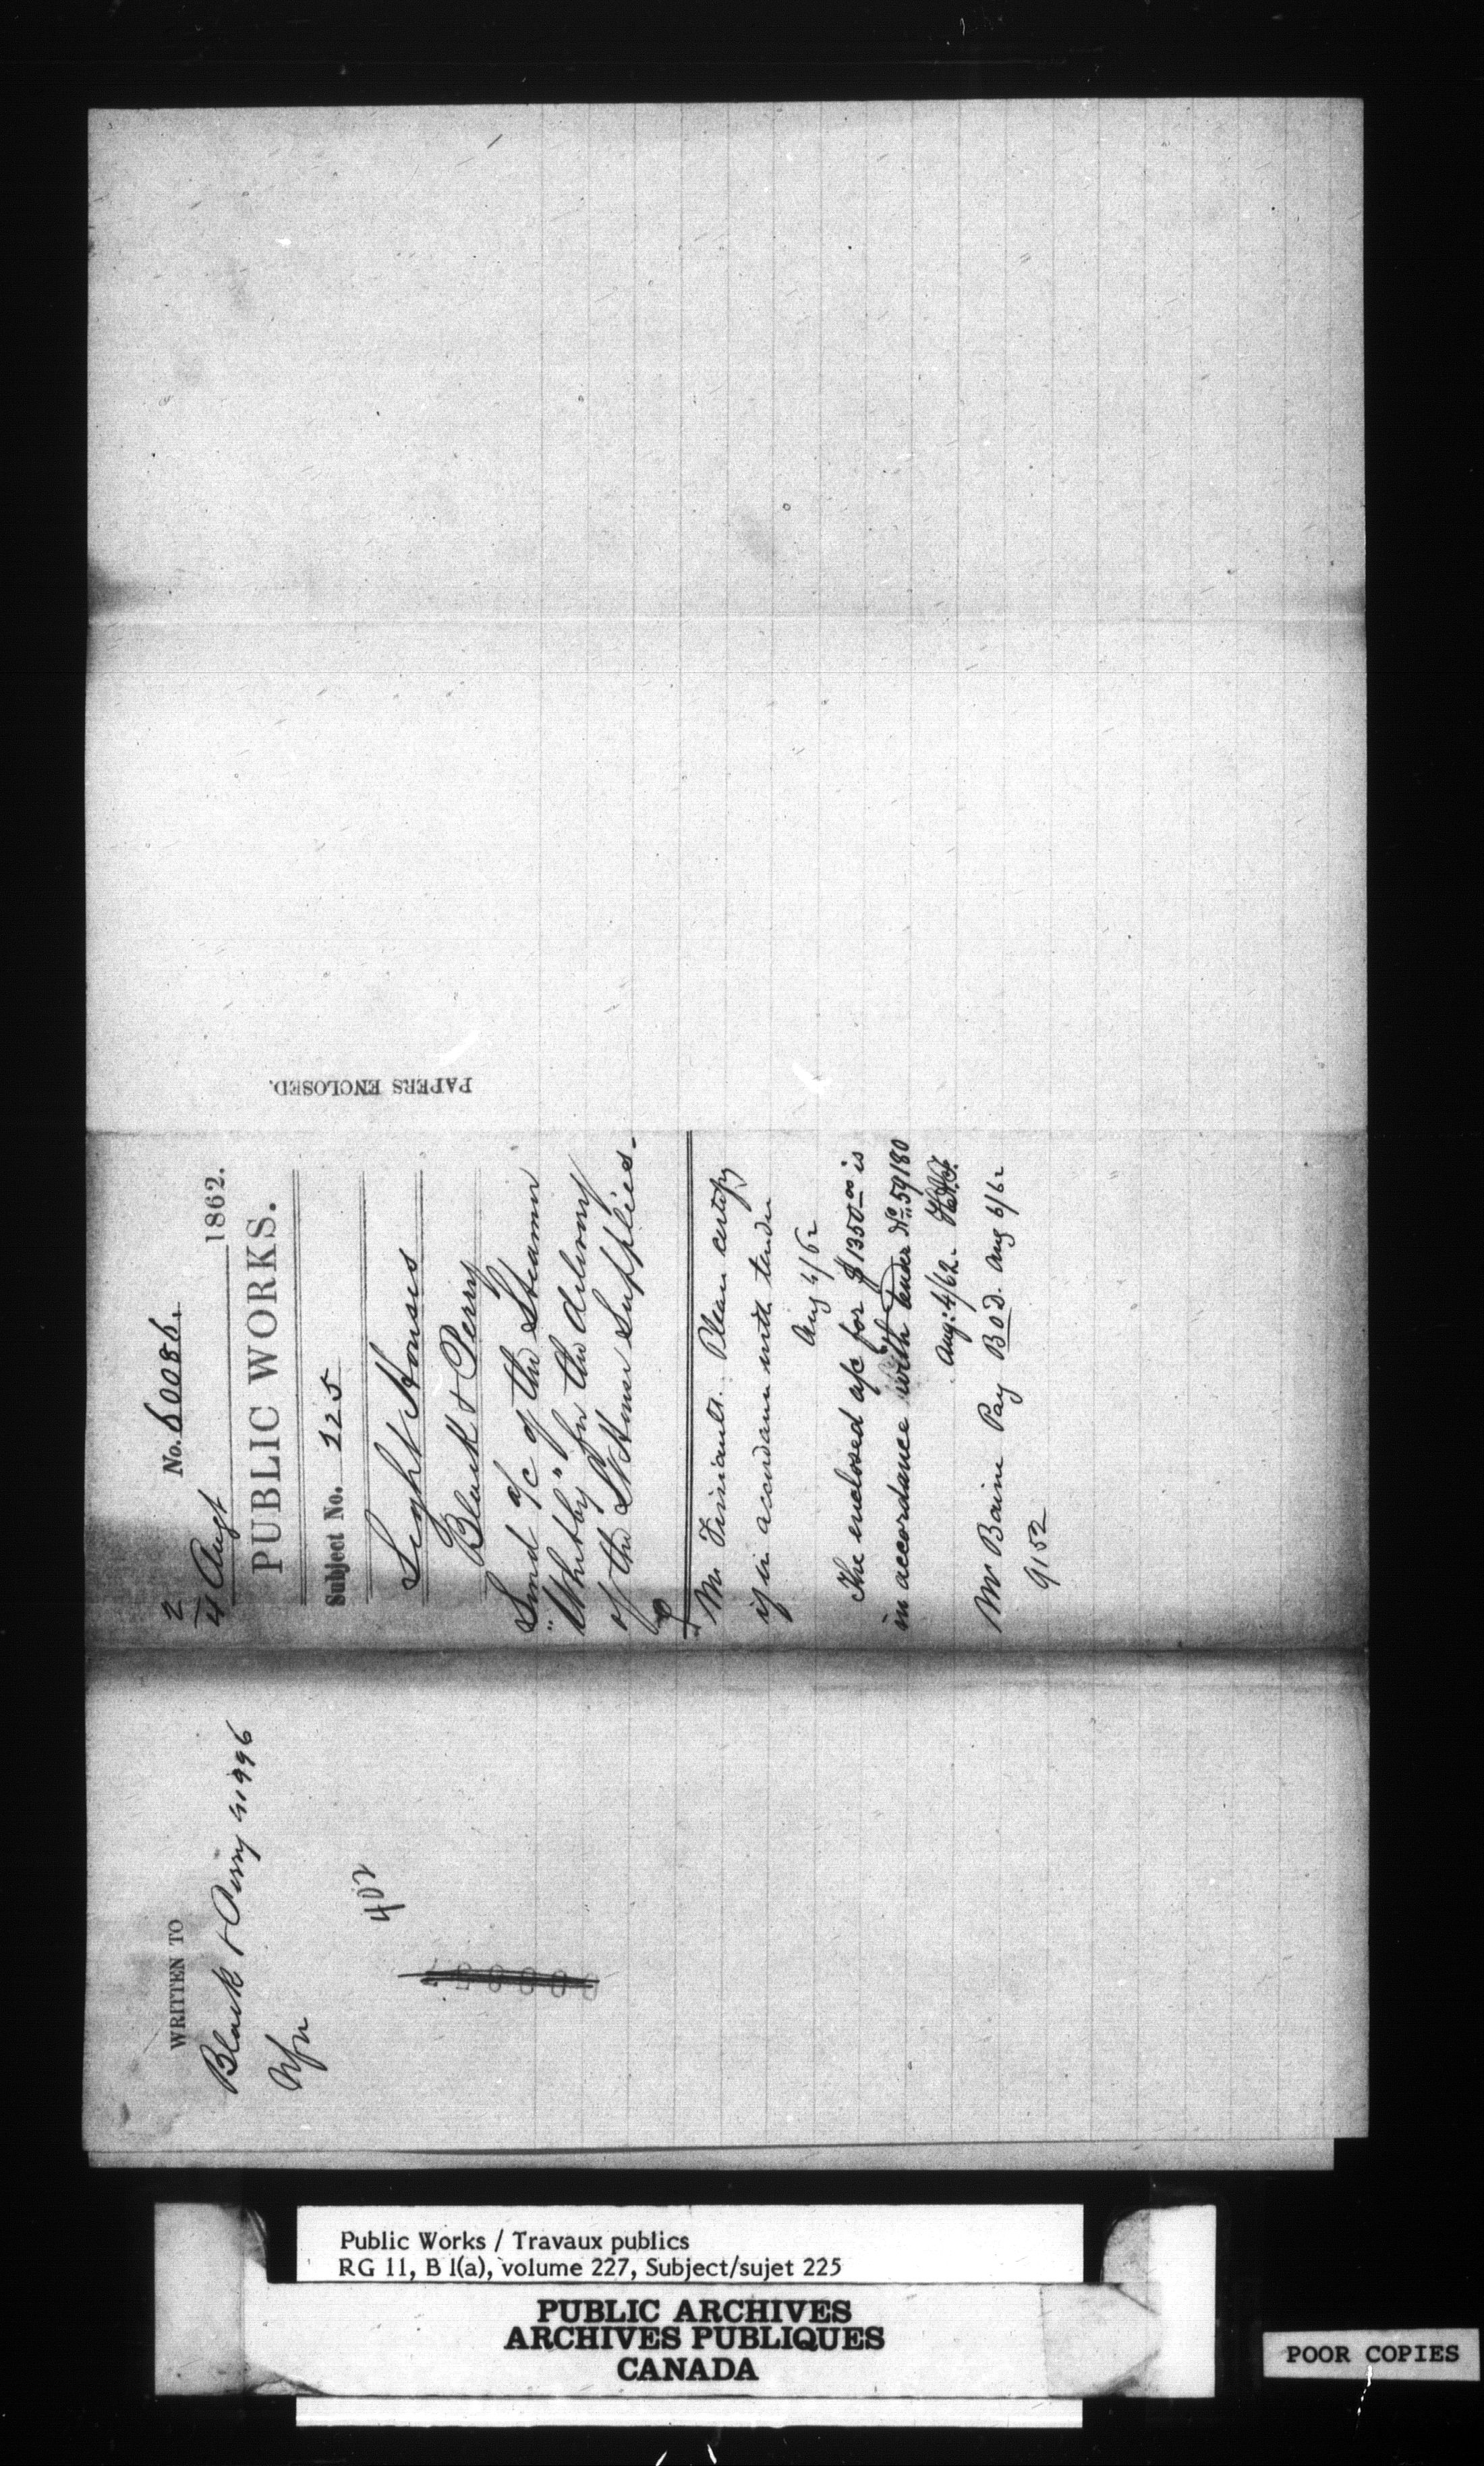 2
4 Augt
No. 60086.
1862.
PUBLIC WORKS.
Subject No. 225
Light Houses
Black & Perry
Send a/c of the Steamer
"Whitby" for the delivery
of the Lt House Supplies -
Mr Please certify
if in accordance with tender
Aug 4/62
The enclosed a/c for $1350.00 is
in accordance with tender No. 59180
Aug: 4/62
Mr Baine Pay B o D. Aug 6/62
9152
PAPERS ENCLOSED.
WRITTEN TO
Black & Perry 41996
402
Public Works / Travaux publics
RG 11, B 1(a), volume 227, Subject/sujet 225
PUBLIC ARCHIVES
ARCHIVES PUBLIQUES
CANADA
POOR COPIES